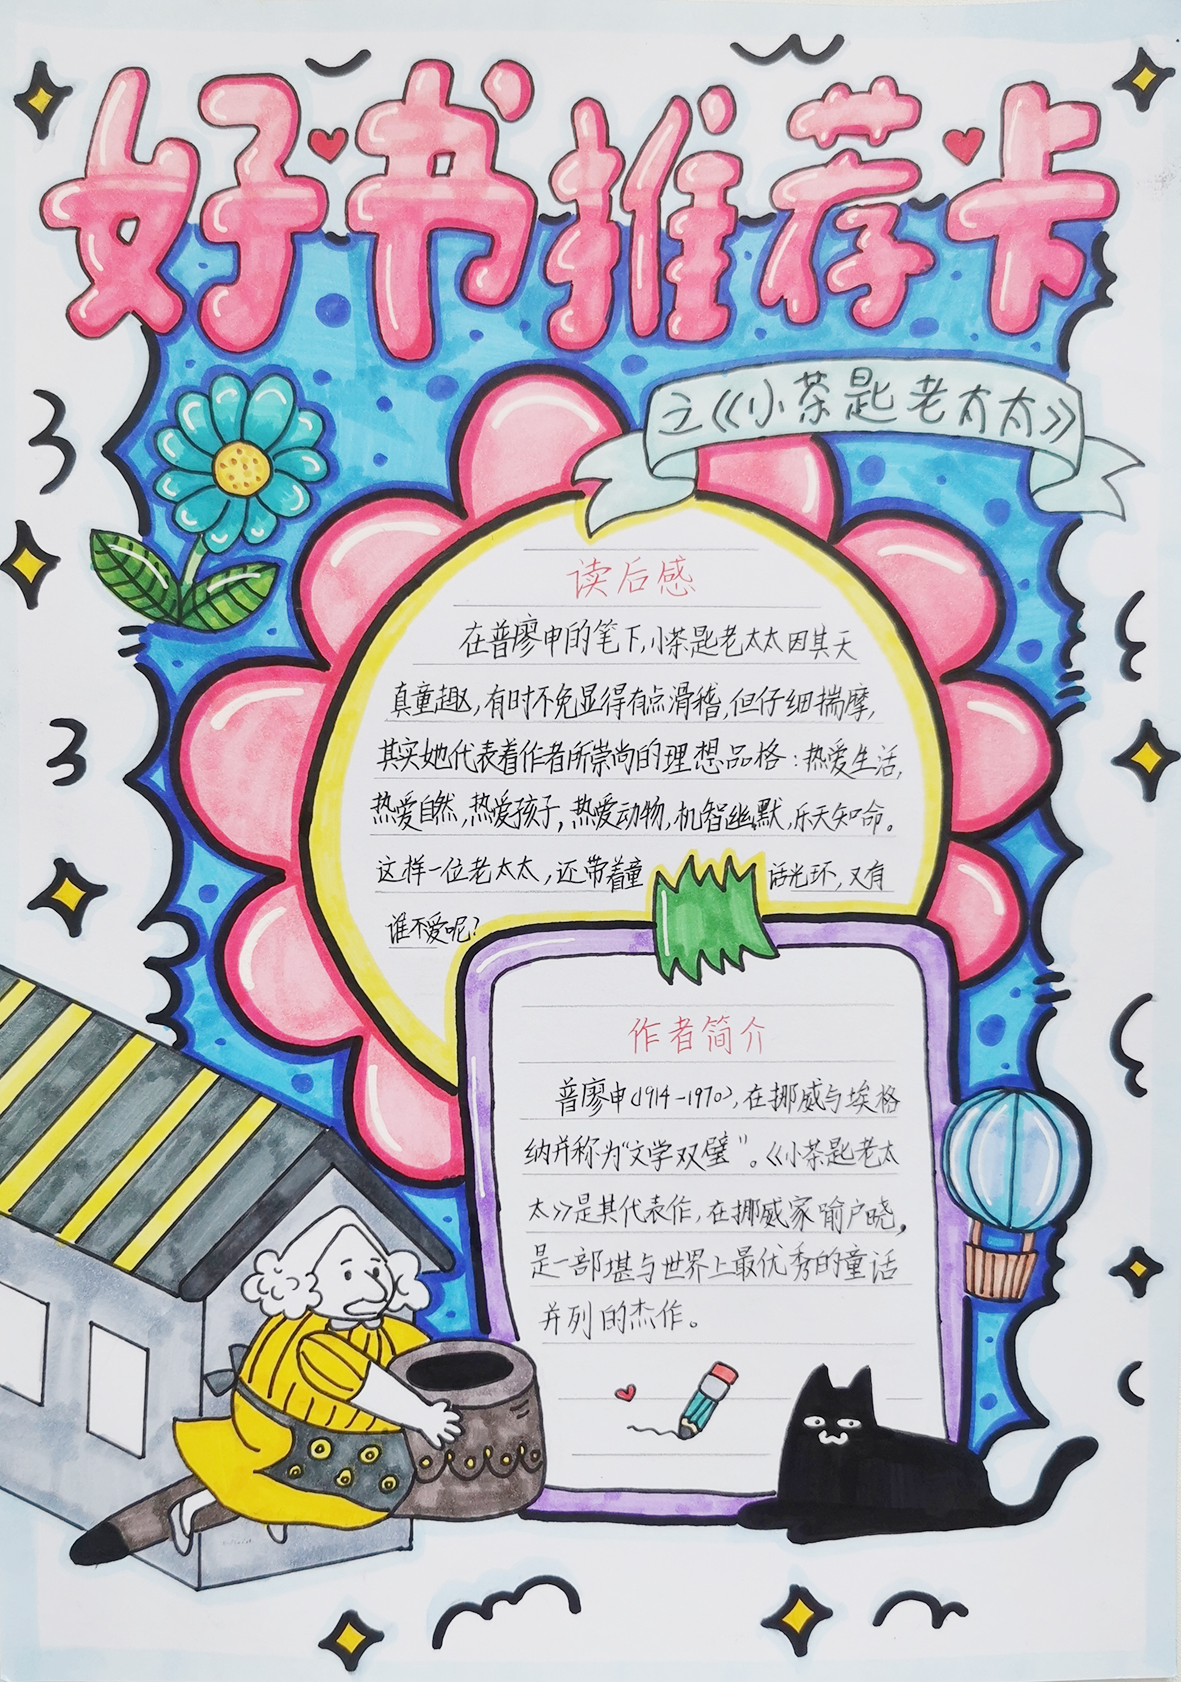 好书推荐卡
之《小茶匙老太太》
读后感
在普廖申的笔下,小茶匙老太太因其天
真童趣,有时不免显得有点滑稽,但仔细揣摩,
其实她代表着作者所崇尚的理想品格:热爱生活,
热爱自然,热爱孩子,热爱动物,机智幽默,乐天知命。
这样一位老太太,还带着童话光环,又有
谁不爱呢?
作者简介
普廖申(1914-1970),在挪威与埃格
纳并称为“文学双璧”。《小茶匙老太
太》是其代表作,在挪威家喻户晓,
是一部堪与世界上最优秀的童话
并列的杰作。